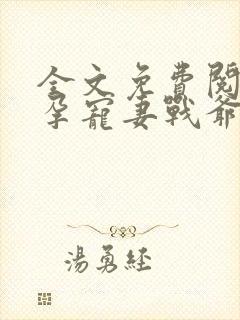 全文免費閱
孕寵妻戰爺
湯勇經